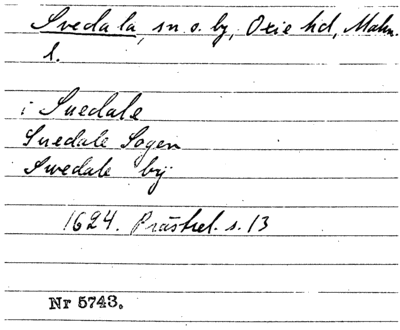 Svedala, sn o. by, Oxie hd, Malm.
l.
i Suedale
Suedale Sogen
Swedale bÿ
1624. Prästrel. s. 13
Nr 5743.